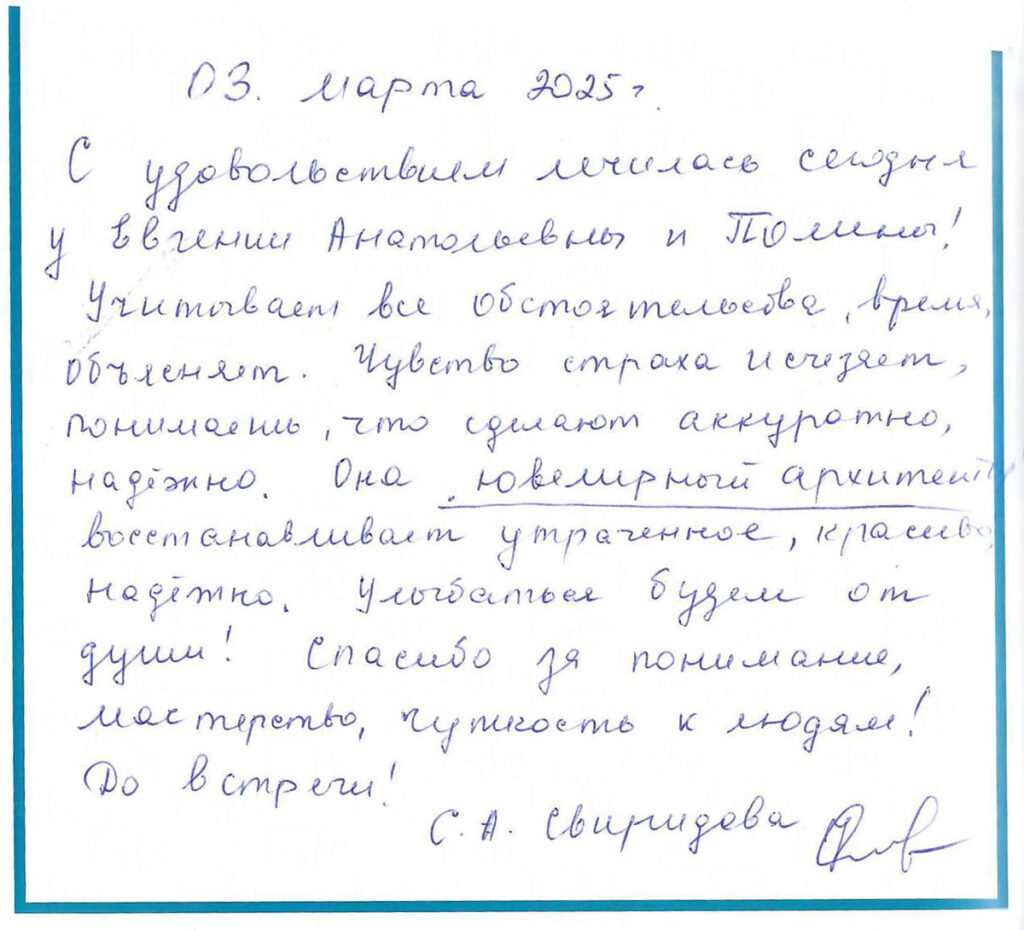 03. марта 2025г.
С удовольствием лечилась сегодня
у Евгении Анатольевны и Полины!
Учитывает все обстоятельства, время,
объясняет. Чувство страха исчезает,
понимаешь, что сделают аккуратно,
надёжно. Она ювелирный архитектор
восстанавливает утраченное, красиво,
надёжно. Улыбаться будем от
души! Спасибо за понимание,
мастерство, чуткость к людям!
До встречи!
С.А. Свиридова